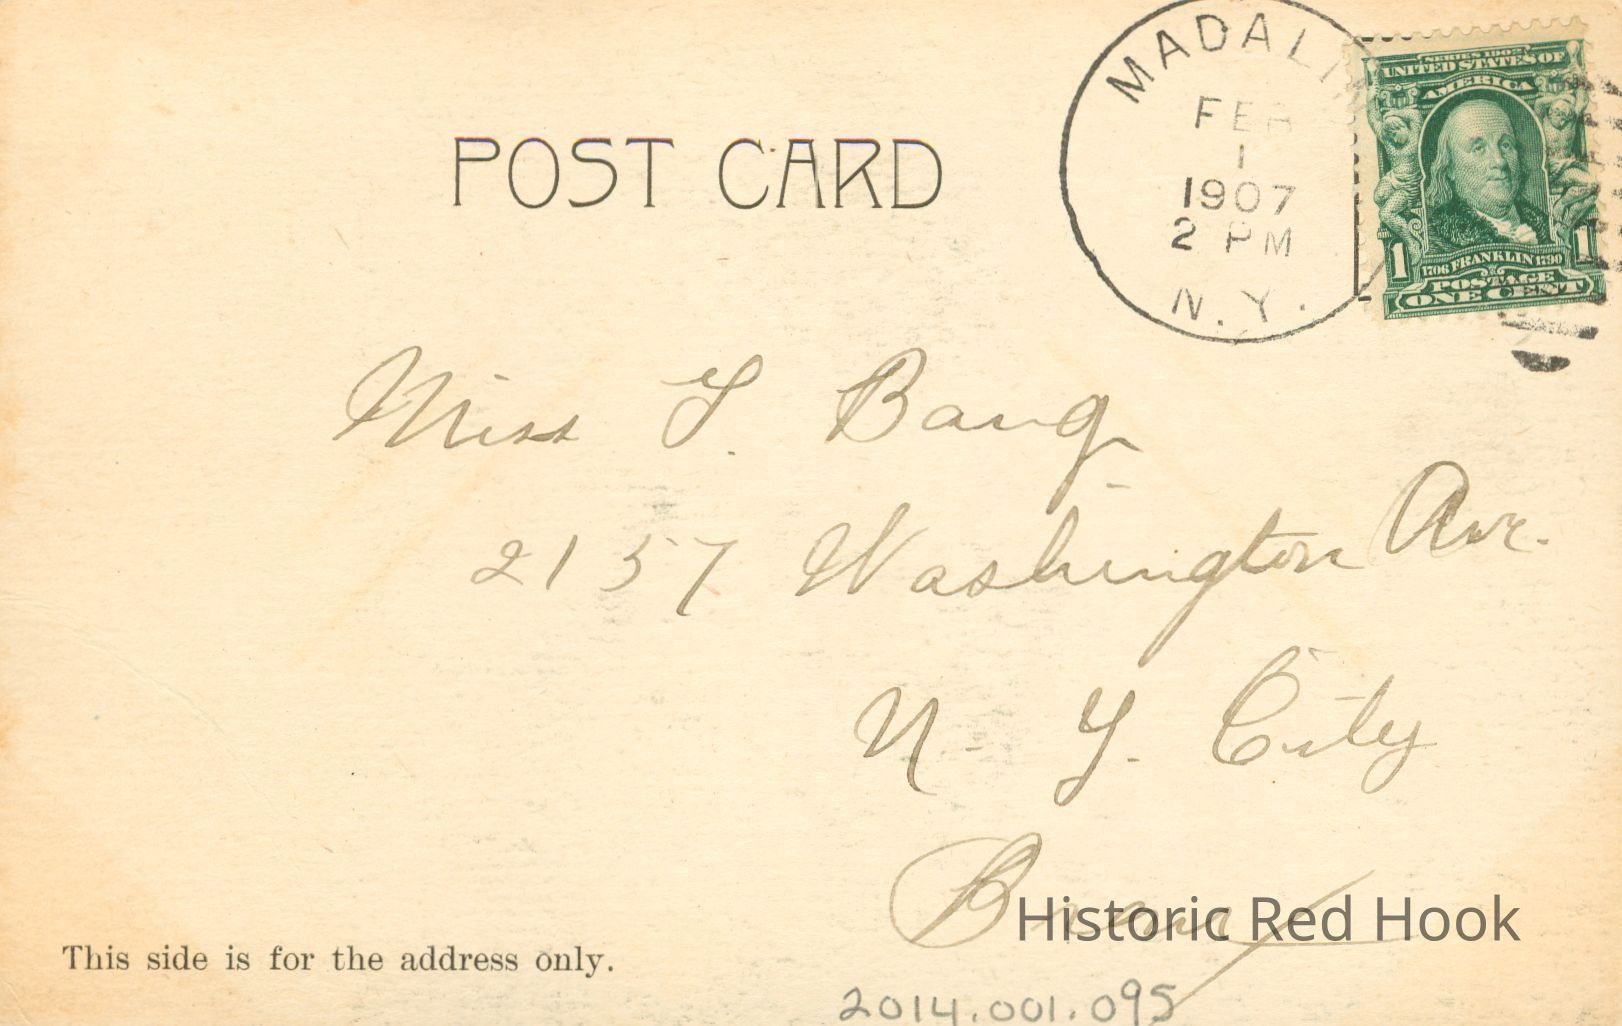 MADALIN
FEB
1
1907
2 PM
N.Y.
SERIES 1902
UNITED STATES OF
AMERICA
1 1
1706 FRANKLIN 1790
POSTAGE
ONE CENT
POST CARD
Miss Bang
2157 Washington Ave.
N. Y. City
Bronx
Historic Red Hook
This side is for the address only.
2014.001.095